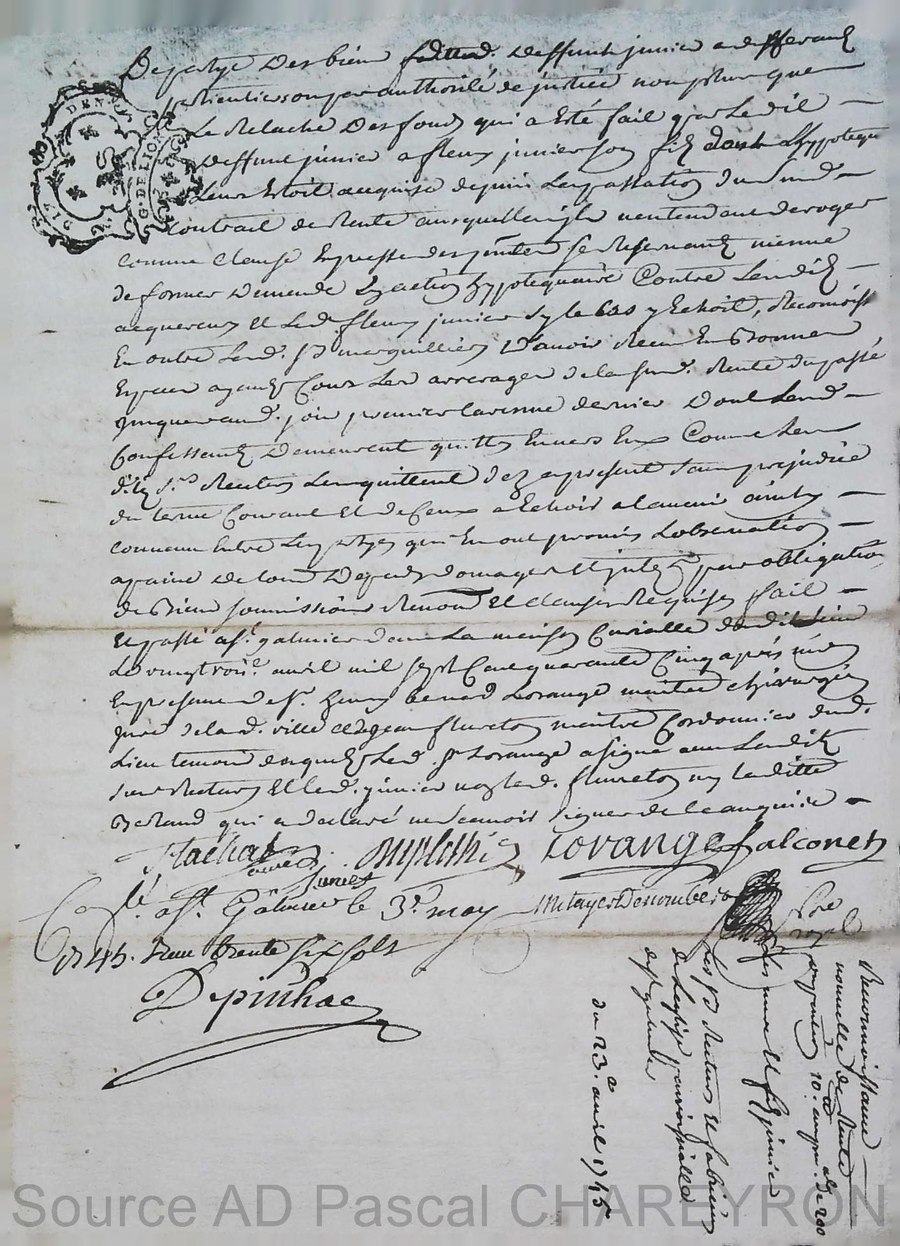 De partye Des biens dud. Deffunt junier
par authorité de justice non plus que
Le Relache Des fonds qui a esté fait par Ledit
Deffunt junier a fleury junier son fils dont Lhypoteque
Leur Estoit acquise depuis La passation du susd.
contrait de Rente auxquelles ils n'entendent deroger
comme clause Expresse des presentes se Reservant mesme
de former Demande En action hypotequaire Contre Lesdits
acquereurs Et Led. fleury junier sy le cas y Echoit, Reconoiss
En outre Lesd. Srs marguilliers D'avoir Receu En Bonnes
Especes ayant Cours Les arrerages de la susd. Rente du passé
jusques aud. jour premier Dernier Dont Lesd.
Confessants Demeurent quittes Envers Eux Comme Les
dits Srs Recteurs Les quittent des a present sans prejudice
du terme Courant Et de Ceux a Echoir a Lavenir ainsy
convenu Entre Les partyes qui En ont promis Lobservation
apaine de tous Depens domages Et interests par obligation
de Biens soumissions Renon. Et clauses Requises fait
Et passé a St. galmier dans La maison Curialle dudit Lieu
Le vingt trois.e avril mil sept Cent quarante Cinq après midy
En presence de Sr. benard Lorange maitre chirurgien
juré de lad. ville Et de jean fleureton maitre Cordonnier dud.
Lieu temoins desquels Led. Sr Lorange a signé avec Lesdits
sieurs Recteurs Et Led. junier non led. fleureton ny laditte
Berland qui a declaré ne scavoir signer de ce enquise
Flachat
curé
junier
Lorange Falconet
C.lé a St. Galmier le 3e may
1745. Receu Trente six sols
Depinhac
Nore
royal
Reconnoissance
nouvelle de Rente
10.
de 200
junier
Les Srs Recteurs Et fabriciens
de Leglise paroissialle
de St galmier
du 23.e avril 1745
G. DE LION
Source AD Pascal CHAREYRON